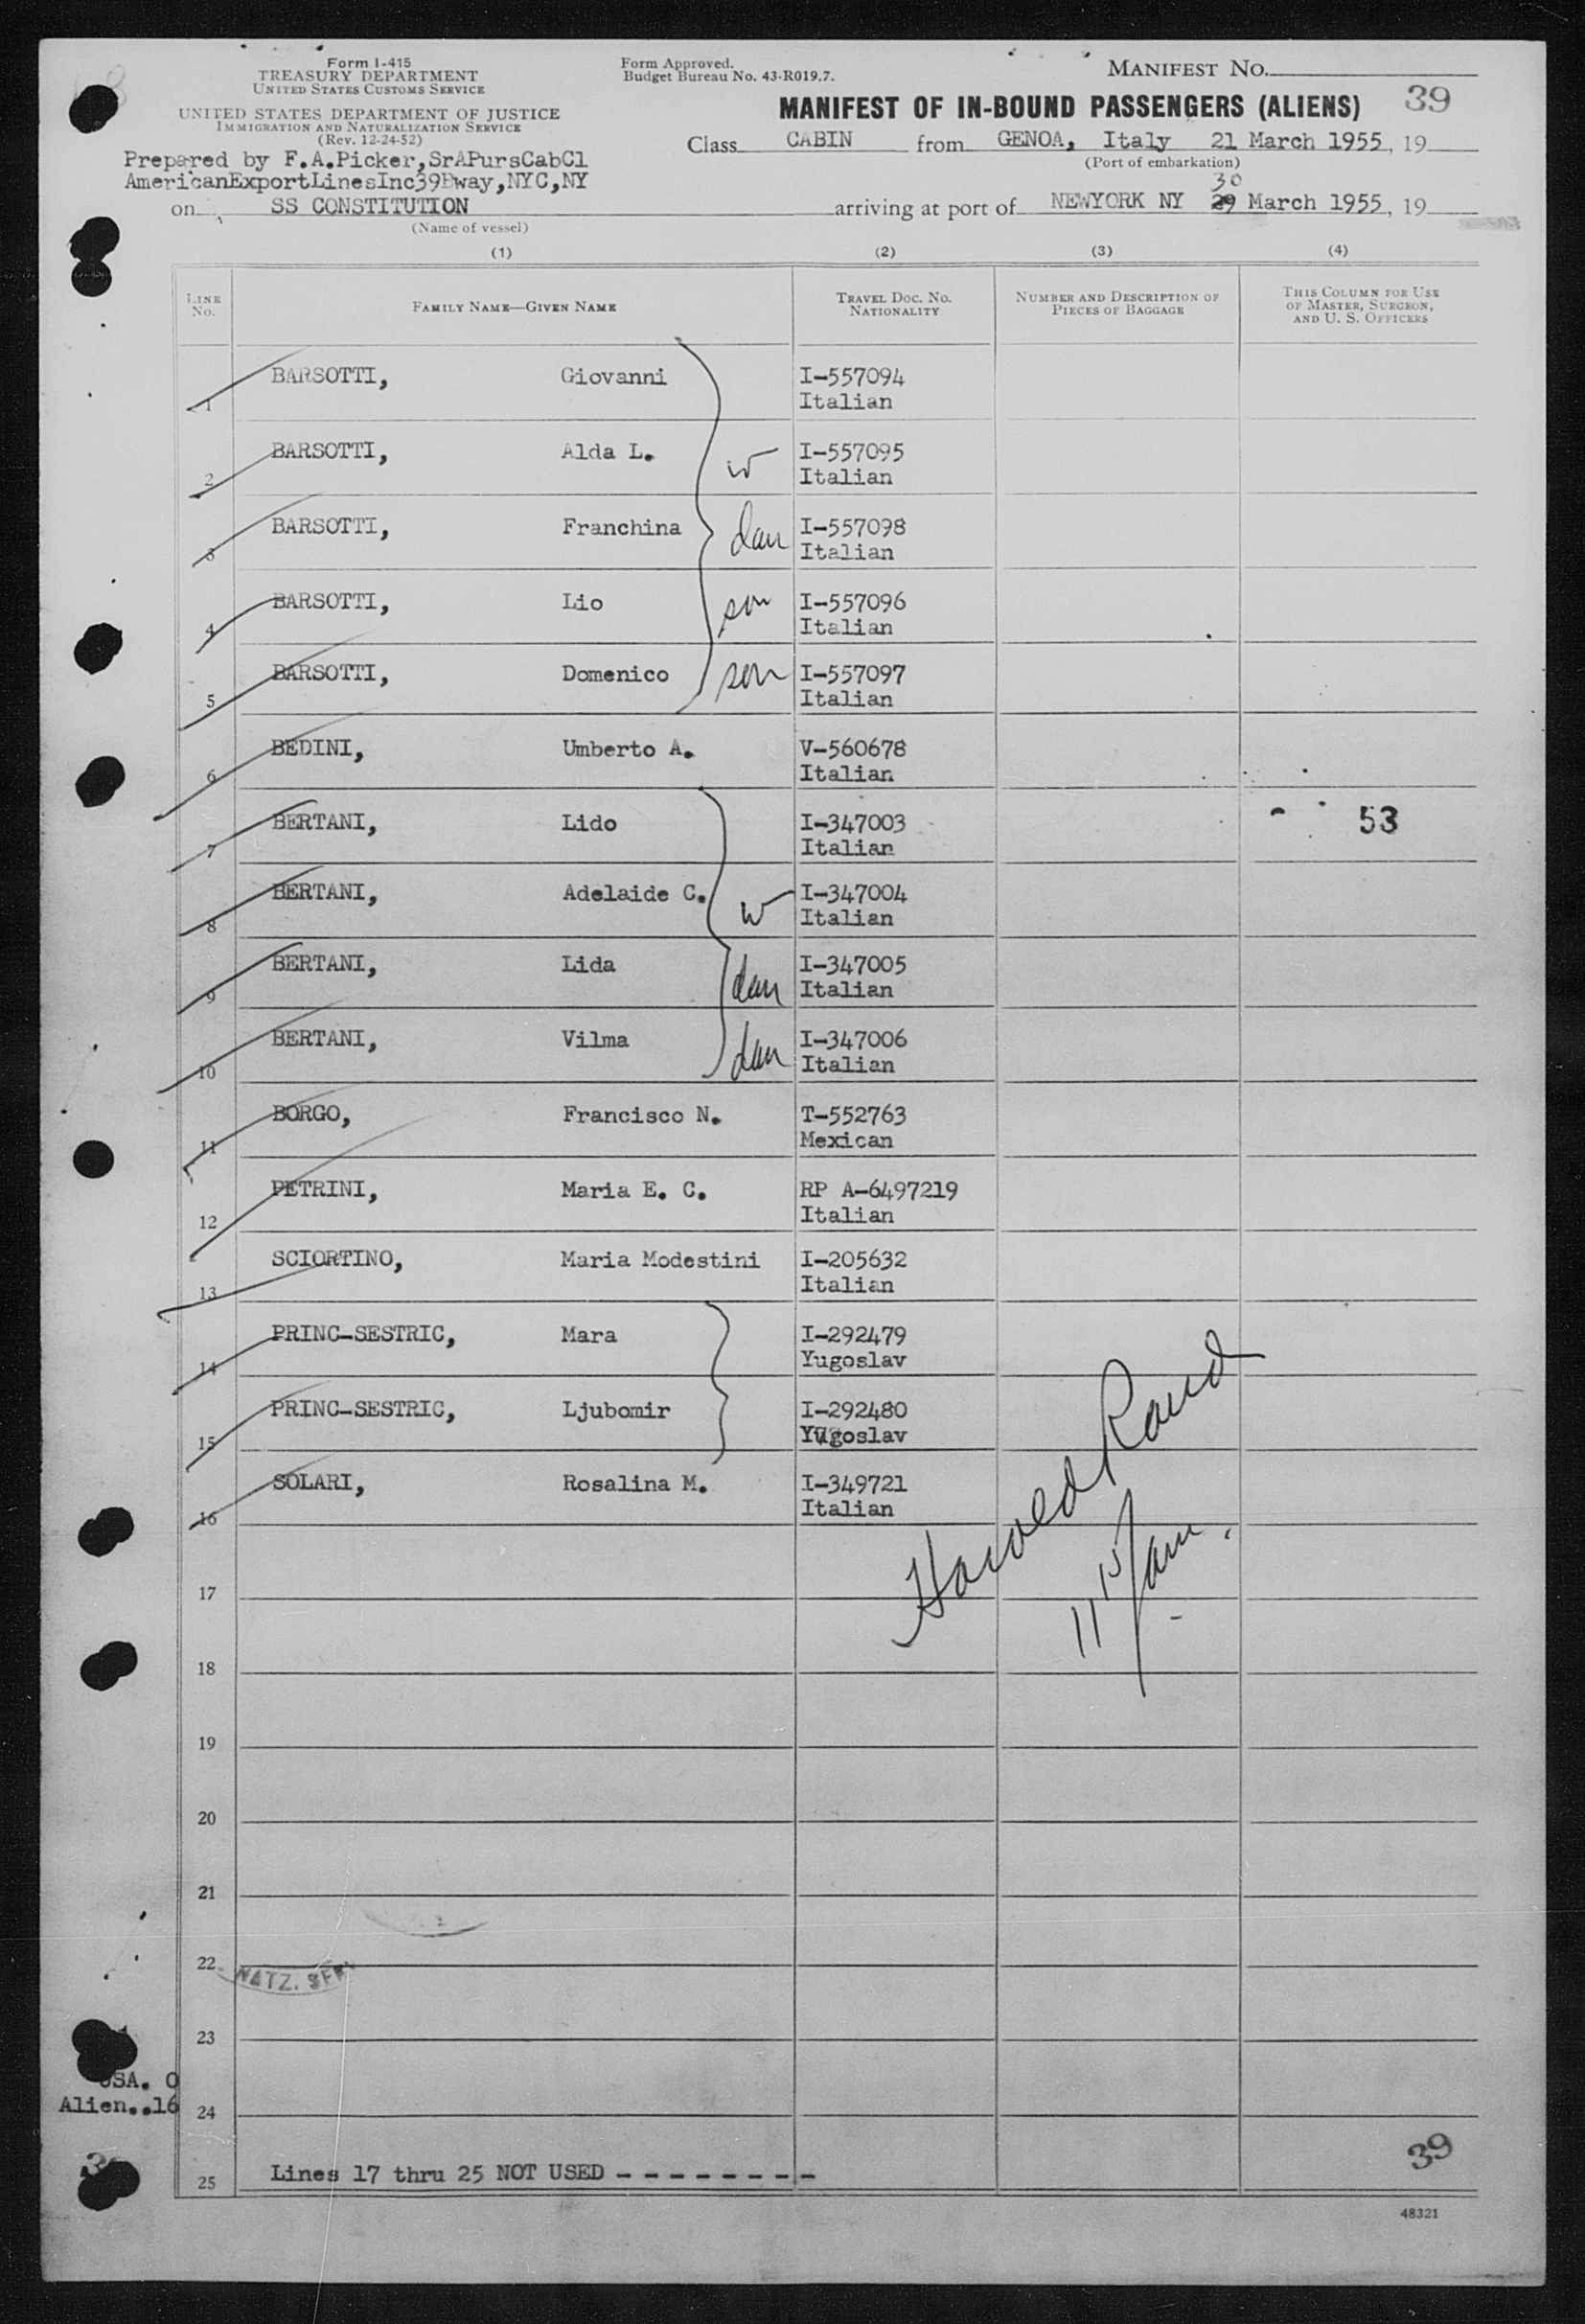 Form I-415
TREASURY DEPARTMENT
UNITED STATES CUSTOMS SERVICE
UNITED STATES DEPARTMENT OF JUSTICE
IMMIGRATION AND NATURALIZATION SERVICE
(Rev. 12-24-52)
Form Approved.
Budget Bureau No. 43-R019.7.
MANIFEST NO.
39
MANIFEST OF IN-BOUND PASSENGERS (ALIENS)
Class CABIN from GENOA, Italy 21 March 1955, 19
(Port of embarkation)
Prepared by F.A.Picker,SrAPursCabCl
AmericanExportLinesInc39Bway,NYC,NY
30
on SS CONSTITUTION arriving at port of NEWYORK NY 29 March 1955, 19
(Name of vessel)
(1) (2) (3) (4)
LINE No. FAMILY NAME—GIVEN NAME TRAVEL DOC. NO. NATIONALITY NUMBER AND DESCRIPTION OF PIECES OF BAGGAGE THIS COLUMN FOR USE OF MASTER, SURGEON, AND U. S. OFFICERS
1 BARSOTTI, Giovanni I-557094
Italian
2 BARSOTTI, Alda L. w I-557095
Italian
3 BARSOTTI, Franchina dau I-557098
Italian
4 BARSOTTI, Lio son I-557096
Italian
5 BARSOTTI, Domenico son I-557097
Italian
6 BEDINI, Umberto A. V-560678
Italian
7 BERTANI, Lido I-347003 53
Italian
8 BERTANI, Adelaide C. w I-347004
Italian
9 BERTANI, Lida dau I-347005
Italian
10 BERTANI, Vilma dau I-347006
Italian
11 BORGO, Francisco N. T-552763
Mexican
12 PETRINI, Maria E. C. RP A-6497219
Italian
13 SCIORTINO, Maria Modestini I-205632
Italian
14 PRINC-SESTRIC, Mara I-292479
Yugoslav
15 PRINC-SESTRIC, Ljubomir I-292480
Yugoslav
16 SOLARI, Rosalina M. I-349721
Italian
Harold Rand
11 15/am.
17
18
19
20
21
22
NATZ. SER
23
USA. 0
Alien..16
24
25 Lines 17 thru 25 NOT USED - - - - - - - -
39
48321